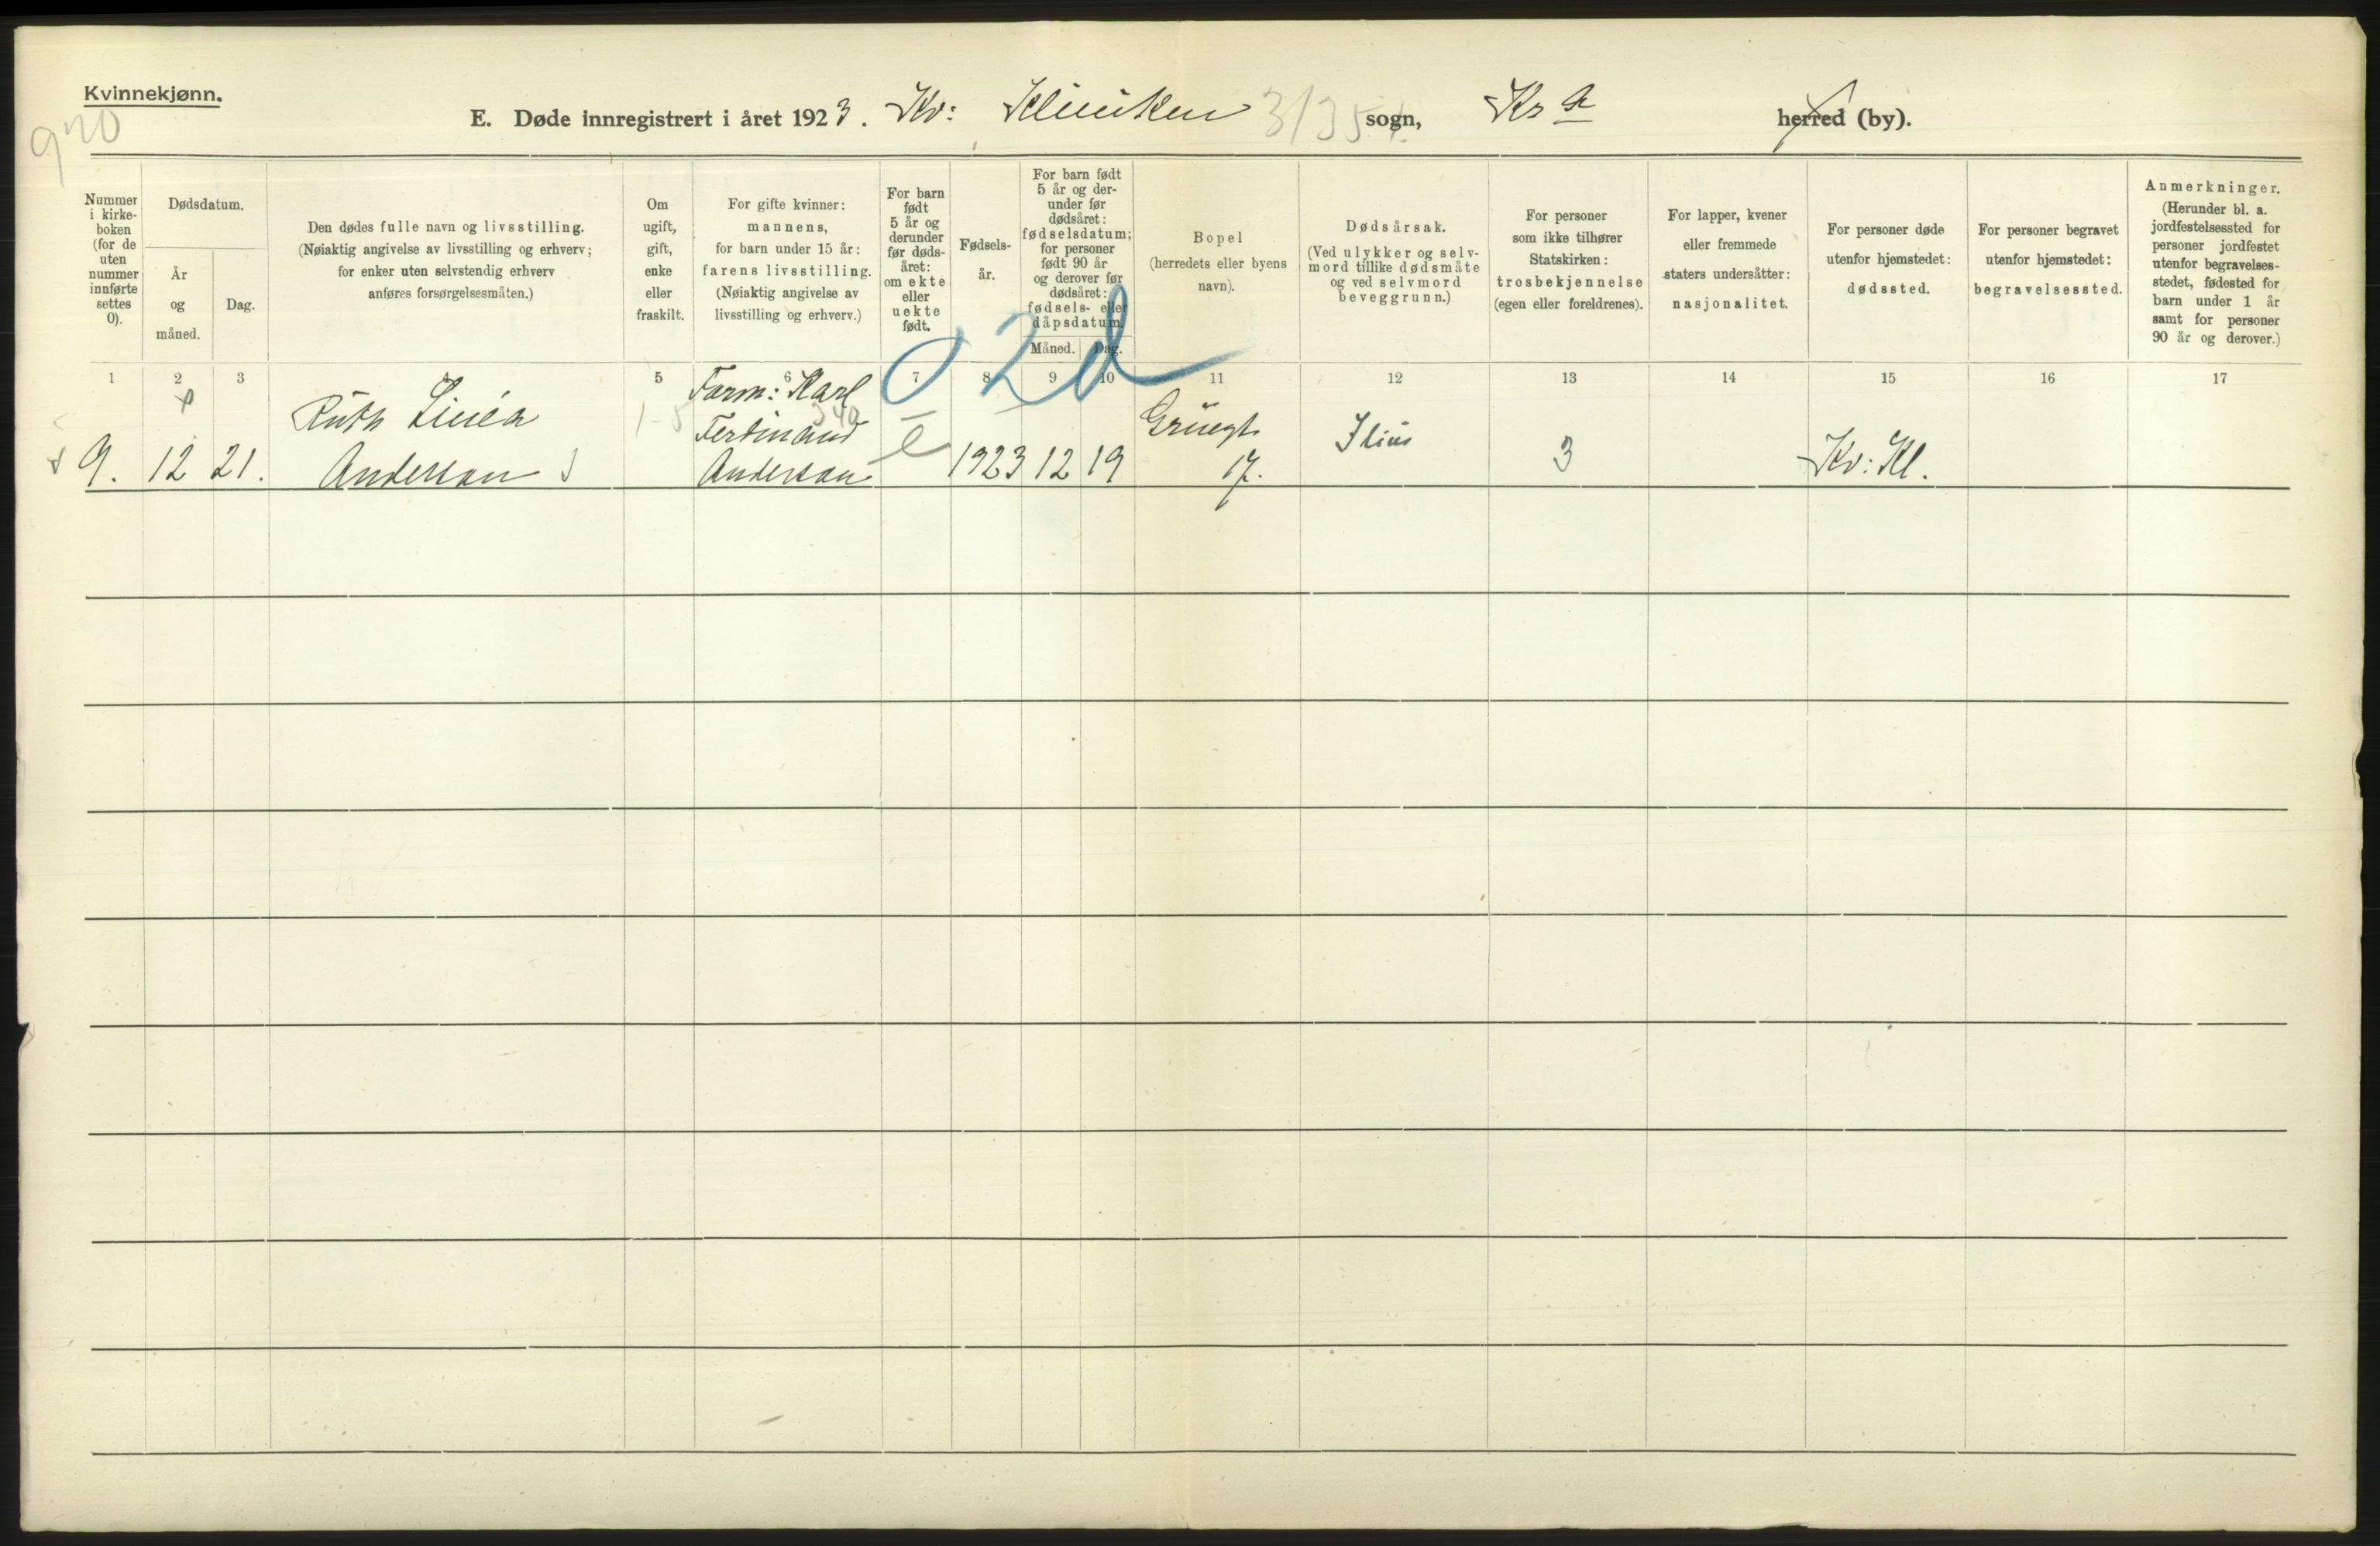 Kvinnekjønn.
920
E. Døde innregistrert i året 1923. Kv: Kliniken 3/35 sogn, Kr a herred (by).
Nummer i kirke-boken (for de uten nummer innførte settes 0).
Dødsdatum.
År og måned.
Dag.
Den dødes fulle navn og livsstilling.
(Nøiaktig angivelse av livsstilling og erhverv;
for enker uten selvstendig erhverv
anføres forsørgelsesmåten.)
Om
ugift,
gift,
enke
eller
fraskilt.
For gifte kvinner:
mannens,
for barn under 15 år:
farens livsstilling.
(Nøiaktig angivelse av
livsstilling og erhverv.)
For barn
født
5 år og
derunder
før døds-
året:
om ekte
eller
uekte
født.
Fødsels-
år.
For barn født
5 år og der-
under før
dødsåret:
fødselsdatum;
for personer
født 90 år
og derover før
dødsåret:
fødsels- eller
dåpsdatum.
Måned. Dag.
Bopel
(herredets eller byens
navn).
Dødsårsak.
(Ved ulykker og selv-
mord tillike dødsmåte
og ved selvmord
beveggrunn.)
For personer
som ikke tilhører
Statskirken:
trosbekjennelse
(egen eller foreldrenes).
For lapper, kvener
eller fremmede
staters undersåtter:
nasjonalitet.
For personer døde
utenfor hjemstedet:
dødssted.
For personer begravet
utenfor hjemstedet:
begravelsessted.
Anmerkninger.
(Herunder bl. a.
jordfestelsessted for
personer jordfestet
utenfor begravelses-
stedet, fødested for
barn under 1 år
samt for personer
90 år og derover.)
1 2 3 5 6 7 8 9 10 11 12 13 14 15 16 17
02d
Ruth Linéa
Anderson
Form: Karl
Ferdinand
Anderson
340
1-5
9. 12 21.
e 1923 12 19
Grünegt.
17.
3
Kv: Kl.